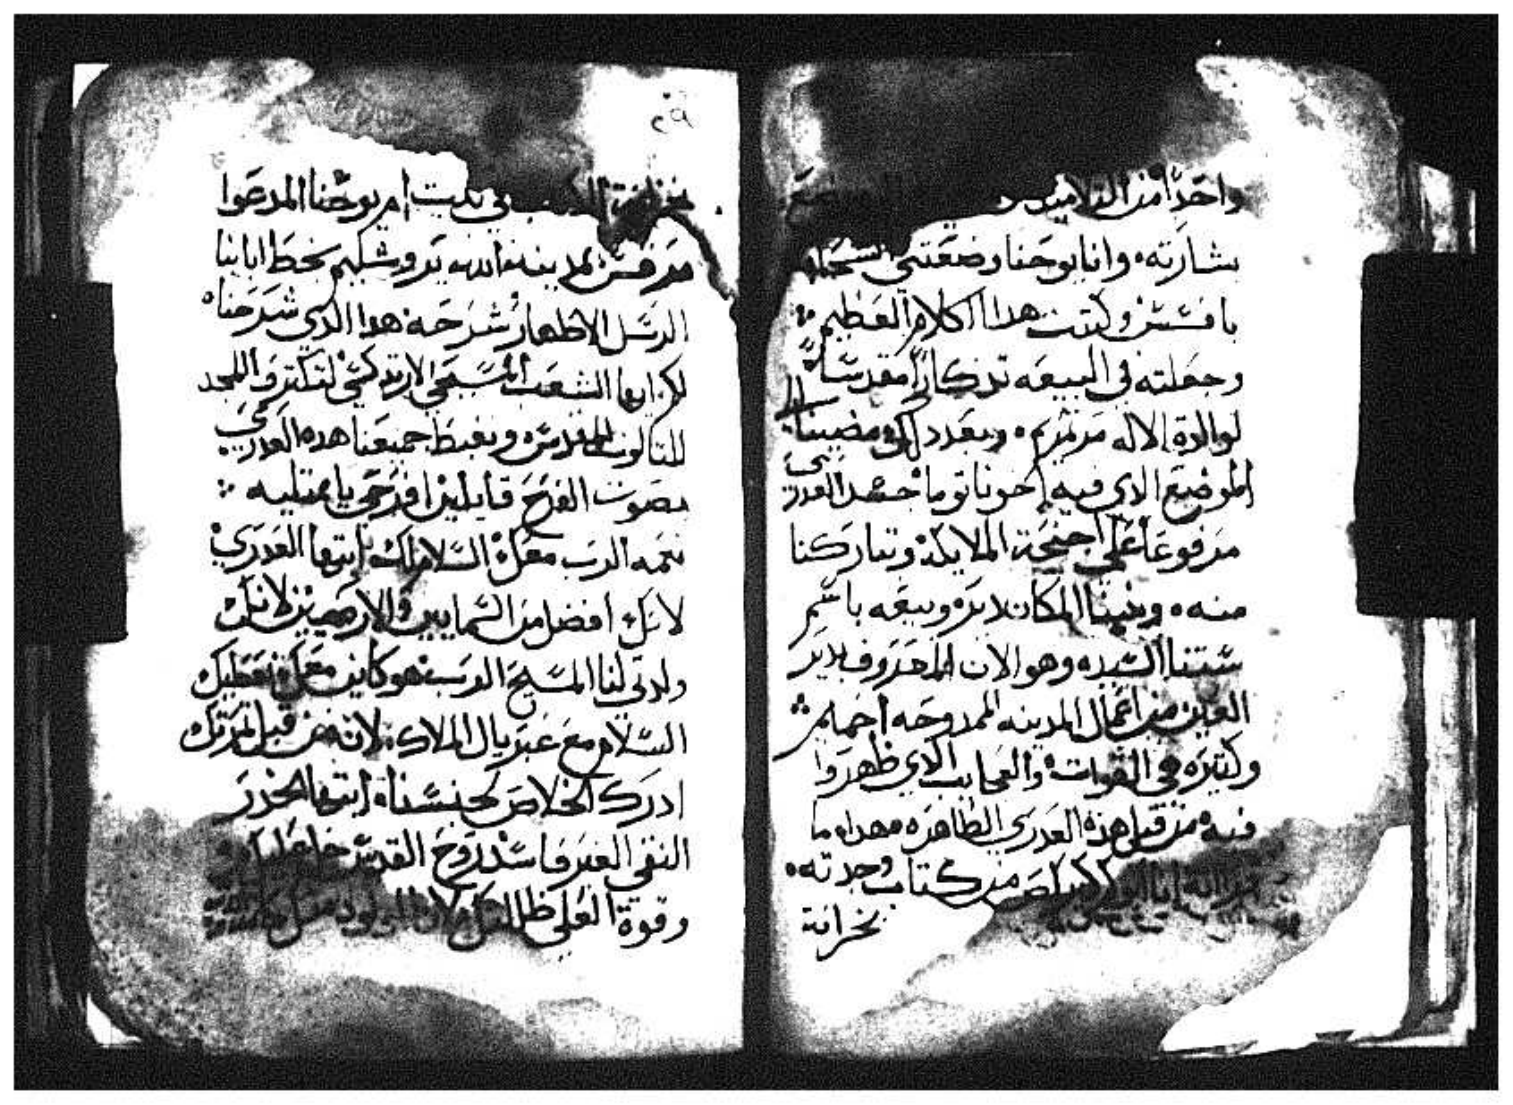 واحدا من التلاميد
بشارته وانا يوحنا وضعتني
بافسس وكتبت هدا الكلام العظيم
وجعلته في البيعه تدكارا مقدسا
لوالدة الاله مرتمريم وبعد دلك مضينا الى
الموضع الدي فيه اخونا توما جسد العدري
مرفوعا على اجنحة الملايكة وتباركنا
منه وبنينا المكان دير وبيعه باسم
ستنا السيده وهو الان المعروف بدير
العين من اعمال المدينه الممدوحه اخميم
وكتيره هي القوات والعجايب الدي ظهروا
فيه من قبل هذه العدري الطاهره فهدا ما
من كتاب وجدته
بخزانة
٢٩
في بيت ام يوحنا المدعوا
مرقس بمدينة يروشليم بخط ابايننا
الرسل الاطهار شرحه هدا الدي شرحناه
لكم ايها الشعب المسيحي الارتدكسي لتكترو المجد
للتالوت المقدس ويغبط جميعنا هده العدري
بصوت الفرح قايلين افرحي يا ممتليه
نعمه الرب معك السلام لك ايتها العدري
لانك افضل من السمايين والارضيين لانك
ولدتي لنا المسيح الرب هو كاين معك نعطيك
السلام مع غبريال الملاك لانه من قبل تمرتك
ادرك الخلاص لجنسنا ايتها الخدر
النقي الغير فاسد روح القدس حل عليك
وقوة العلي ظللتك لان المولود منك